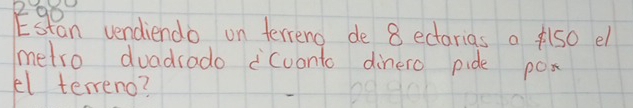 290
Estan vendiendo un terreno de 8 ectarias a $150 el
metro duadrado ¿Cuanto dinero pide por
el terreno?